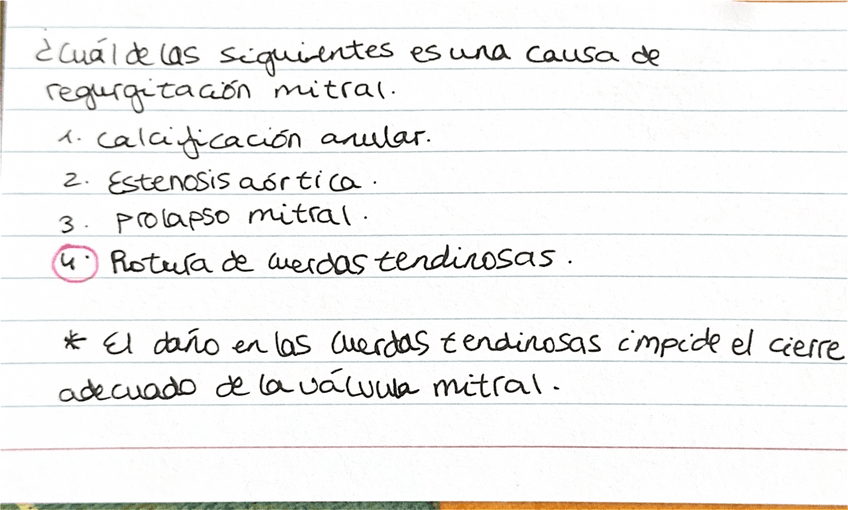 ¿Cuál de las siguientes es una causa de
regurgitación mitral.
1. Calcificación anular.
2. Estenosis aórtica.
3. Prolapso mitral.
4. Rotura de cuerdas tendinosas.
* El daño en las cuerdas tendinosas impide el cierre
adecuado de la válvula mitral.